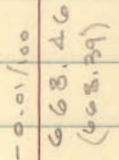 -0.01/100
668.46
(668.39)